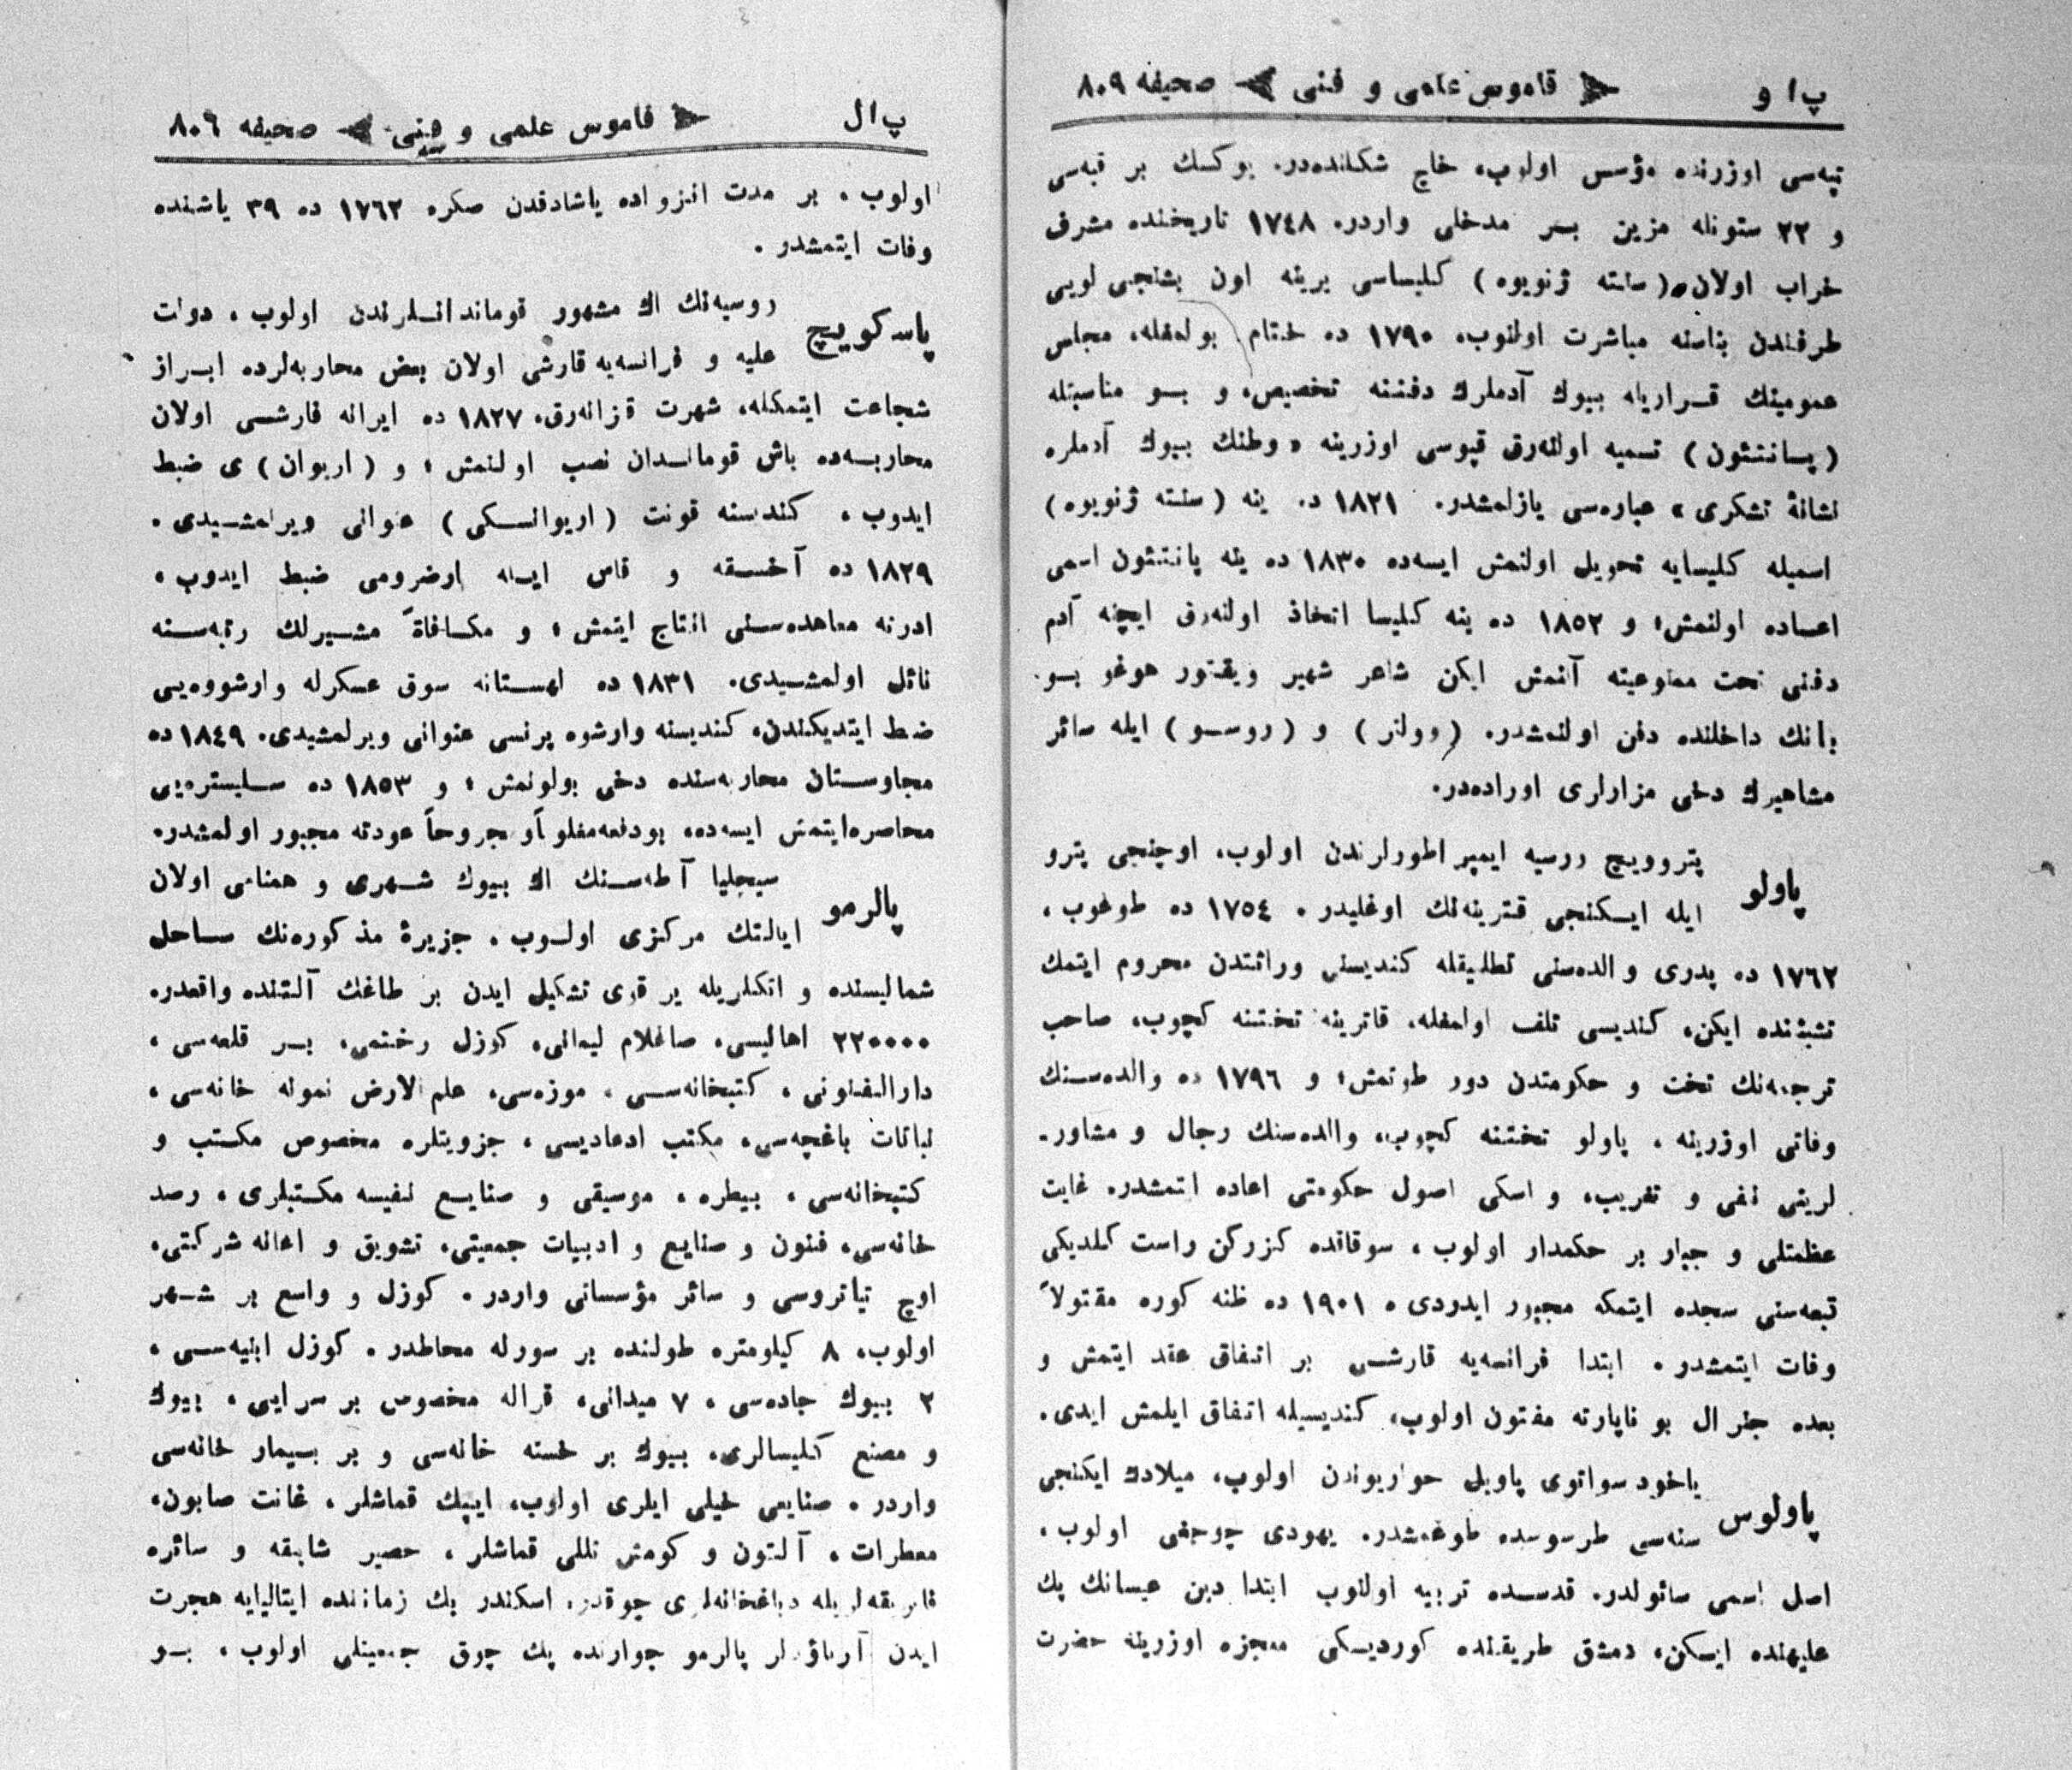 پ‌ا و قاموس علمی و فنی صحیفه ٨٠٩
تپه‌سی اوزرنده مؤسس اولوب، خاچ شكلنده‌در. یوكسك بر قبه‌سی
و ٢٢ ستونله مزین بر مدخلی واردر. ١٧٤٨ تاریخنده مشرف
خراب اولان (سنته ژنویوه) كلیساسی یرینه اون بشنجی لویی
طرفندن بناسنه مباشرت اولنوب، ١٧٩٠ ده ختام بولمغله، مجلس
عمومینك قراریله بیوك آدملرك دفننه تخصیص، و بو مناسبتله
(پانتئون) تسمیه اولنه‌رق قپوسی اوزرینه «وطنك بیوك آدملره
نشانهٔ تشكری» عباره‌سی یازلمشدر. ١٨٢١ ده ینه (سنته ژنویوه)
اسمیله كلیسایه تحویل اولنمش ایسه‌ده ١٨٣٠ ده ینه پانتئون اسمی
اعاده اولنمش؛ و ١٨٥٢ ده ینه كلیسا اتخاذ اولنه‌رق ایچنه آدم
دفنی تحت ممنوعیته آلنمش ایكن شاعر شهیر ویقتور هوغو بو
بانك داخلنده دفن اولنمشدر. (وولتر) و (روسو) ایله سائر
مشاهیرك دخی مزارلری اوراده‌در.
پاولو پتروویچ روسیه ایمپراطورلرندن اولوب، اوچنجی پترو
ایله ایكنجی قترینه‌نك اوغلیدر. ١٧٥٤ ده طوغوب،
١٧٦٢ ده پدری والده‌سنی تطلیقله كندیسنی وراثتدن محروم ایتمك
تشبثنده ایكن، كندیسی تلف اولمغله، قاترینه تختنه كچوب، صاحب
ترجمه‌نك تخت و حكومتدن دور طوتمش؛ و ١٧٩٦ ده والده‌سنك
وفاتی اوزرینه، پاولو تختنه كچوب، والده‌سنك رجال و مشاور-
لرینی نفی و تغریب، و اسكی اصول حكومتی اعاده ایتمشدر. غایت
عظمتلی و جبار بر حكمدار اولوب، سوقاقده كزركن راست كلدیكی
تبعه‌سنی سجده ایتمكه مجبور ایدردی. ١٩٠١ ده ظنه كوره مقتولاً
وفات ایتمشدر. ابتدا فرانسه‌یه قارشی بر اتفاق عقد ایتمش و
بعده جنرال بوناپارته مفتون اولوب، كندیسیله اتفاق ایلمش ایدی.
پاولوس یاخود سوانوی پاویل حواریوندن اولوب، میلادك ایكنجی
سنه‌سی طرسوسده طوغمشدر. یهودی چوجغی اولوب،
اصل اسمی سائولدر. قدسده تربیه اولنوب ابتدا دین عیسانك پك
علیهنده ایسكن، دمشق طریقنده كوردیكی معجزه اوزرینه حضرت
پ‌ال قاموس علمی و فنی صحیفه ٨٠٦
اولوب، بر مدت انزواده یاشادقدن صكره ١٧٦٢ ده ٣٩ یاشنده
وفات ایتمشدر.
پاسكویچ روسیه‌نك اك مشهور قوماندانلرندن اولوب، دولت
علیه و فرانسه‌یه قارشی اولان بعض محاربه‌لرده ابراز
شجاعت ایتمكله، شهرت قزانه‌رق، ١٨٢٧ ده ایرانه قارشی اولان
محاربه‌ده باش قوماندان نصب اولنمش؛ و (اریوان) ی ضبط
ایدوب، كندیسنه قونت (اریوانسكی) عنوانی ویرلمشیدی.
١٨٢٩ ده آخسقه و قاص ایله ارضرومی ضبط ایدوب،
ادرنه معاهده‌سنی انتاج ایتمش؛ و مكافاةً مشیرلك رتبه‌سنه
نائل اولمشیدی. ١٨٣١ ده لهستانه سوق عسكرله وارشووه‌یی
ضبط ایتدیكندن، كندیسنه وارشوه پرنسی عنوانی ویرلمشیدی. ١٨٤٩ ده
مجارستان محاربه‌سنده دخی بولونمش؛ و ١٨٥٣ ده سلیستره‌یی
محاصره ایتمش ایسه‌ده، بودفعه مغلوباً و مجروحاً عودته مجبور اولمشدر.
پالرمو سیجلیا آطه‌سنك اك بیوك شهری و همنامی اولان
ایالتك مركزی اولوب، جزیرهٔ مذكوره‌نك ساحل
شمالیسنده و اتكلریله بر قوی تشكیل ایدن بر طاغك آلتنده واقعدر.
٢٢٠٠٠٠ اهالیسی، صاغلام لیمانی، كوزل رختمی، بر قلعه‌سی،
دارالفنونی، كتبخانه‌سی، موزه‌سی، علم الارض نمونه خانه‌سی،
نباتات باغچه‌سی، مكتب اعدادیسی، جزویتلره مخصوص مكتب و
كتبخانه‌سی، بیطره، موسیقی و صنایع نفیسه مكتبلری، رصد
خانه‌سی، فنون و صنایع و ادبیات جمعیتی، تشویق و اعانه شركتی،
اوچ تیاتروسی و سائر مؤسساتی واردر. كوزل و واسع بر شهر
اولوب، ٨ كیلومتره طولنده بر سورله محاطدر. كوزل ابنیه‌سی،
٢ بیوك جاده‌سی، ٧ میدانی، قراله مخصوص بر سرایی، بیوك
و مصنع كلیسالری، بیوك بر خسته خانه‌سی و بر بیمار خانه‌سی
واردر. صنایعی خیلی ایلری اولوب، ایپك قماشلر، غانت صابون،
معطرات، آلتون و كومش تللی قماشلر، حصیر شابقه و سائره
فابریقه‌لریله دباغخانه‌لری چوقدر. اسكندر بك زماننده ایتالیایه هجرت
ایدن آرناؤدلر پالرمو جوارنده پك چوق جمعیتلی اولوب، بو